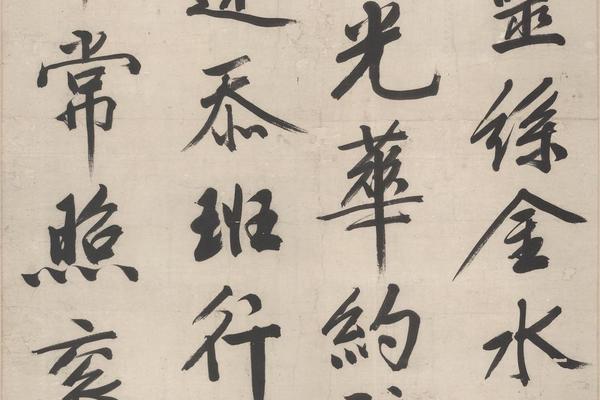 絲金水
光華約
忝班行
常照